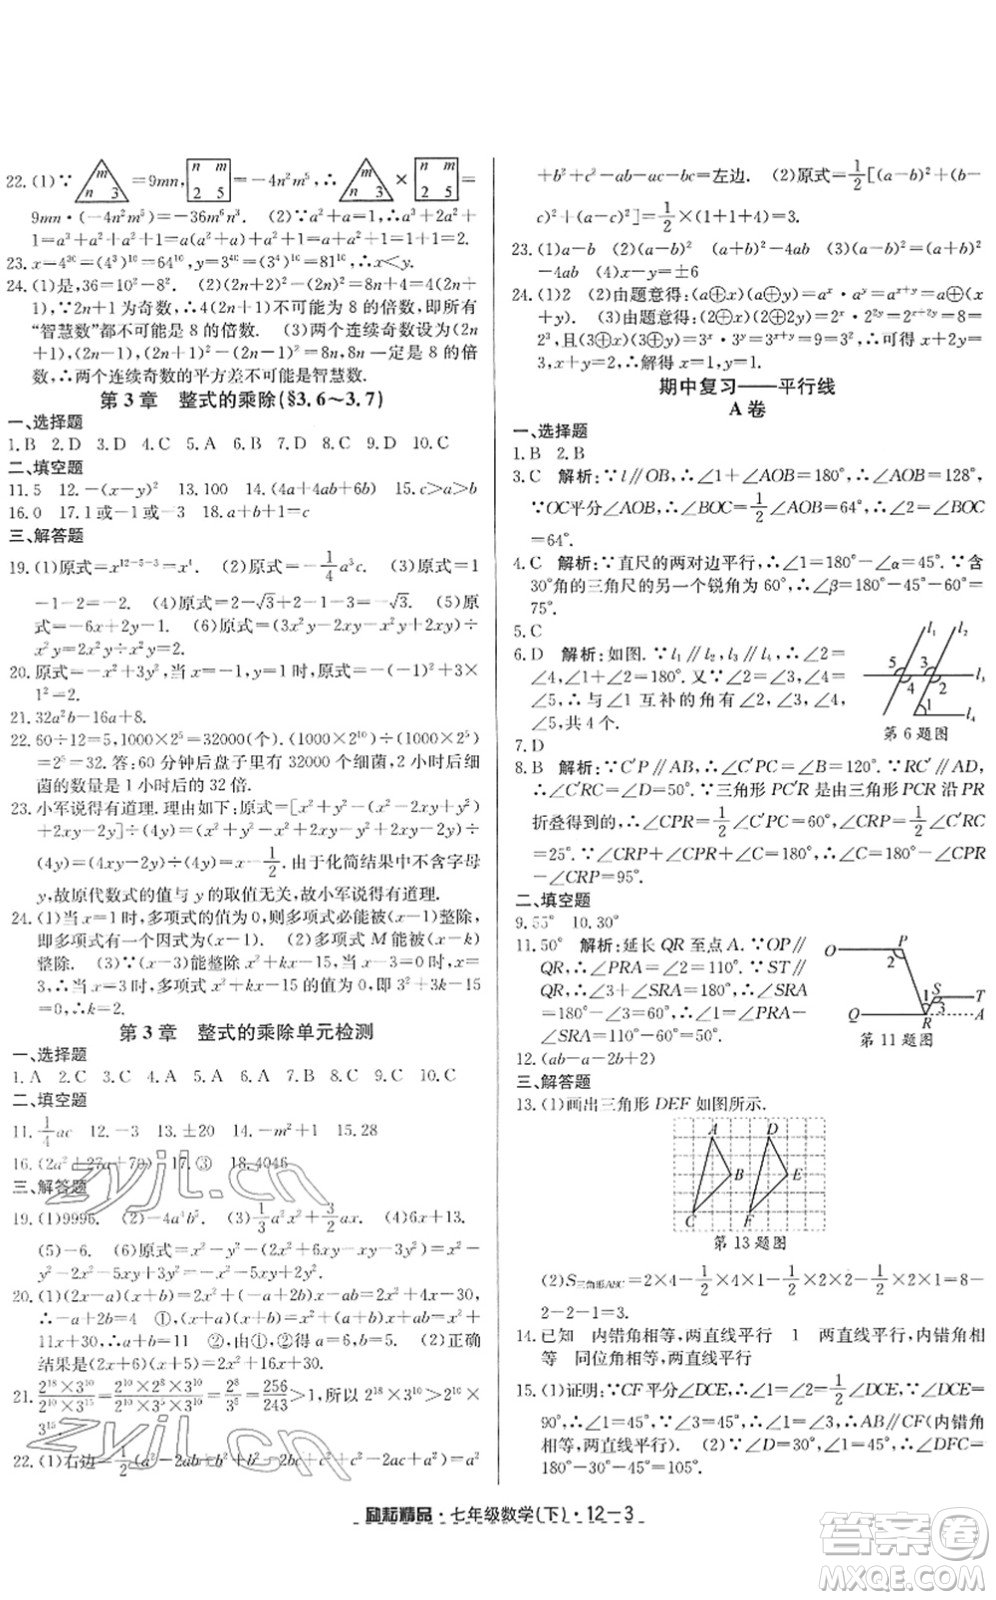 22. (1)∵ m n 3 =9mn, n m 2 5 =-4n²m⁵,∴ m n 3 × n m 2 5 =
9mn·(-4n²m⁵)=-36m⁶n³. (2)∵a²+a=1,∴a⁴+2a³+2a²+
1=a²+a³+a²+1=a²+a+1=1+1=2.
23. x=4³⁰=(4³)¹⁰=64¹⁰,y=3⁴⁰=(3⁴)¹⁰=81¹⁰,∴x<y.
24. (1)是,36=10²-8². (2)(2n+2)²-(2n)²=4(2n+
1),∵2n+1为奇数,∴4(2n+1)不可能是8的倍数,即所有
“智慧数”都不可能是8的倍数. (3)两个连续奇数设为(2n
+1),(2n-1),(2n+1)²-(2n-1)²=8n,8n一定是8的倍
数,∴两个连续奇数的平方差不可能是智慧数.
第3章 整式的乘除(§3.6~3.7)
一、选择题
1.B 2.D 3.D 4.C 5.A 6.D 7.B 8.D 9.D 10.C
二、填空题
11.5 12.-(x-y)² 13.100 14.(4a+4ab+b) 15.c>a>b
16.0 17.1或-1或-3 18.a+b+c
三、解答题
19.(1)原式=x¹²⁻⁵⁻³=x⁴. (2)原式=-1/4 a³c. (3)原式=1
-1-2=-2. (4)原式=2-√3+2-1-3=-√3. (5)原
式=-6x+2y-1. (6)原式=(3x²y-xy²+xy²+x²y)÷
x²y=(2x²y)÷x²y=2.
20.原式=-x²+3y²,当x=-1,y=1时,原式=-(-1)²+3×
1²=2.
21.32a²b-16a+8.
22.60÷12=5,1000×2⁵=32000(个).(1000×2¹⁰)÷(1000×2⁵)
=2⁵=32.答:60分钟后盘子里有32000个细菌,2小时后细
菌的数量是1小时后的32倍.
23.小军说得有道理.理由如下:原式=[x²+y²-(x²-2xy+y²)
+2xy-2y]÷(4y)=(x²+y²-x²+2xy-y²+2xy-2y)÷
(4y)=(4xy-2y)÷(4y)=x-1/2.由于化简结果中不含字母
y,故原代数式的值与y的取值无关,故小军说得有道理.
24.(1)当x=1时,多项式的值为0,则多项式必能被(x-1)整除,
即多项式有一个因式为(x-1). (2)多项式M能被(x-k)
整除. (3)∵(x-3)能整除x²+kx-15,∴当x-3=0,即x=
3,当x=3时,多项式x²+kx-15的值为0,即3²+3k-15
=0,∴k=2.
第3章 整式的乘除单元检测
一、选择题
1.A 2.C 3.C 4.D 5.D 6.B 7.B 8.A 9.C 10.C
二、填空题
11.1/4 ac 12.-3 13.±20 14.-m²+1 15.28
16.(2a²+27a+70) 17.③ 18.4046
三、解答题
19.(1)9996. (2)-4a⁴b⁵. (3)1/3 a²x²+3/2 ax. (4)6x+13.
(5)-6. (6)原式=x²-y²-(2x²-xy+2xy-y²)=x²-
20.(1)(2x-a)(x+b)=2x²+2bx-ax-ab=2x²+4x-30,
∴-a+2b=4 ①,(x+a)(x+b)=x²+(a+b)x+ab=x²+
11x+30,∴a+b=11 ②,由①,②得a=6,b=5. (2)正确
结果是(2x+6)(x+5)=2x²+16x+30.
21.2¹⁸×3¹⁰/2¹⁰×3¹⁵=2¹⁰×2⁸×3¹⁰/2¹⁰×3¹⁰×3⁵=2⁸/3⁵=256/243>1,所以2¹⁸×3¹⁰>2¹⁰×
3¹⁵.
22.(1)右边=1/2(a²-2ab+b²+b²-2bc+c²+c²-2ac+a²)=a²
+b²+c²-ab-bc-ac=左边. (2)原式=1/2[(a-b)²+(b-
c)²+(a-c)²]=1/2×(1+4+1)=3.
23.(1)a-b (2)(a-b)² (a+b)²-4ab (3)(a-b)²=(a+b)²
-4ab (4)x-y=±6
24.(1)2 (2)由题意得:(a⊕x)(a⊕y)=aˣ·aʸ=aˣ⁺ʸ=a⊕(x
+y). (3)由题意得:(2⊕x)(2⊕2y)=2ˣ·2²ʸ=2ˣ⁺²ʸ=8=
2³,且(3⊕x)(3⊕y)=3ˣ·3ʸ=3ˣ⁺ʸ=9=3²,∴x+2y=3,
x+y=2,∴解得x=1,y=1.
期中复习——平行线
A卷
一、选择题
1.B 2.B
3.C 解析:∵l∥OB,∴∠1+∠AOB=180°,∴∠AOB=128°,
∵OC平分∠AOB,∴∠BOC=1/2∠AOB=64°,∴∠2=∠BOC
=64°.
4.C 解析:∵直尺的两对边平行,∴∠1=90°-∠α=45°.∵含
30°角的三角尺的另一锐角为60°,∴∠β=180°-45°-60°=
75°.
5.C
6.D 解析:如图.∵l₁∥l₂,∴∠2=
∠4,∠1+∠2=180°.∵l₃∥l₄,∴∠2=
∠5,∴与∠1互补的角有∠2,∠3,∠4,∠5,
共4个.
l₁ l₂ 5 3 4 2 l₃ 1 l₄
第6题图
7.D
8.B 解析:∵C′P∥AB,∴∠C′PC=∠B=120°.∵RC′∥AD,
∴∠C′RC=∠D=50°.∵三角形PC′R是由三角形PCR沿PR
折叠得到的,∴∠CPR=1/2∠C′PC=60°,∠CRP=1/2∠C′RC
=25°.∵∠CRP+∠CPR+∠C=180°,∴∠C=180°-∠CPR
-∠CRP=95°.
二、填空题
9.55° 10.30°
11.50° 解析:延长QR至点A.∵OP∥
QR,∴∠PRA=∠2=110°.∵ST∥
QR,∴∠SRA=∠3=60°,∴∠1=
∠PRA-∠SRA=110°-60°=50°.
O P 2 1 S T 3 Q R A
第11题图
12.(ab-a-2b+2)
三、解答题
13.(1)画出三角形DEF如图所示.
A D B E C F
第13题图
(2)S三角形ABC=2×4-1/2×2×2-1/2×4×1-1/2×2×1=8-
2-2-1=3.
14.已知 内错角相等,两直线平行 1 两直线平行,内错角相
等 同位角相等,两直线平行
15.(1)证明:∵CF平分∠DCE,∴∠1=∠2=1/2∠DCE,∵∠DCE=
90°,∴∠1=45°.∵∠3=45°,∴∠1=∠3,∴AB∥CF(内错角
相等,两直线平行). (2)∵∠D=30°,∠1=45°,∴∠DFC=
180°-30°-45°=105°.
励耘精品·七年级数学(下)·12-3
zyjl.cn
zyjl.cn
答案圈
MXQE.COM